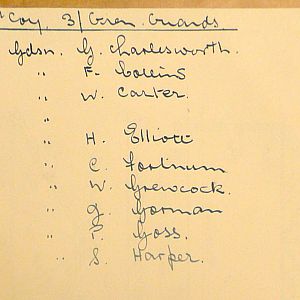 Coy. 3/Gren. Guards
Gdsn. G. Charlesworth.
" F. Collins
" W. Carter.
"
" H. Elliott
" C. Fortnum
" W. Grewcock.
" G. Gorman
" P. Goss.
" S. Harper.